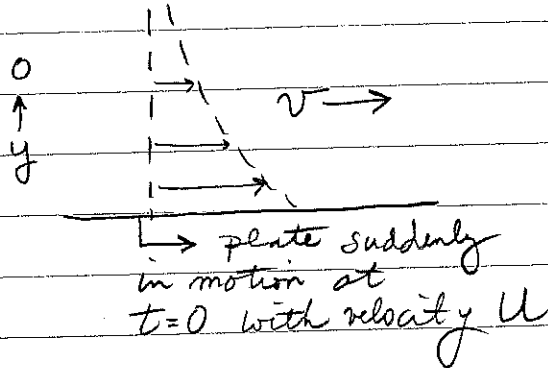 0
v
y
plate suddenly
in motion at
t=0 with velocity U